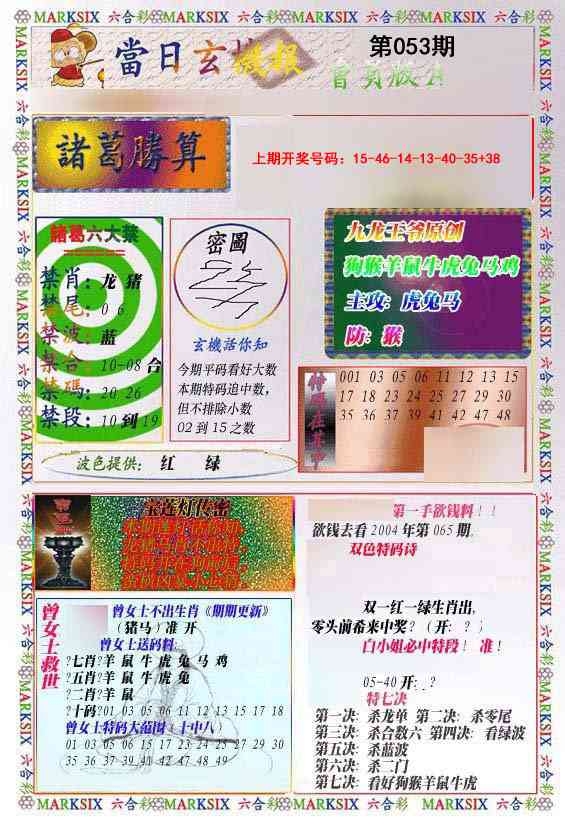 MARKSIX 六合彩 MARKSIX 六合彩 MARKSIX 六合彩 MARKSIX 六合彩 MARKSIX
當日玄機
微报
第053期
會員版A
諸葛勝算
上期开奖号码：15-46-14-13-40-35+38
諸葛六大禁
禁肖：龙 猪
禁尾：0 6
禁波：蓝
禁合：10-08 合
禁碼：20 26
禁段：10 到 19
密圖
玄機活你知
今期平码看好大数
本期特码追中数，
但不排除小数
02 到 15 之数
九龙王爷原创
狗猴羊鼠牛虎兔马鸡
主攻：虎兔马
防：猴
特碼在其中
001 03 05 06 11 12 13 15
17 18 23 24 25 27 29 30
35 36 37 39 41 42 47 48
波色提供： 红 绿
宝莲灯传密
曾女士救世
曾女士不出生肖《期期更新》
（猪马）准 开
曾女士送码料:
?七肖?羊 鼠 牛 虎 兔 马 鸡
?五肖?羊 鼠 牛 虎 兔
?二肖?羊 鼠
?十码?01 03 05 06 11 12 13 15 17 18
曾女士特码大范围（十中八）
01 03 05 06 15 17 23 24 25 27 29 30
35 36 37 39 41 42 47 48 49
第一手欲钱料！！
欲钱去看 2004 年第 065 期。
双色特码诗
双一红一绿生肖出，
零头前希来中奖？（开：？）
白小姐必中特段！ 准！
05-40 开：.？
特七决
第一决：杀龙单 第二决：杀零尾
第三决：杀合数六 第四决：看绿波
第五决：杀蓝波
第六决：杀二门
第七决：看好狗猴羊鼠牛虎
MARKSIX 六合彩 MARKSIX 六合彩 MARKSIX 六合彩 MARKSIX 六合彩 MARKSIX